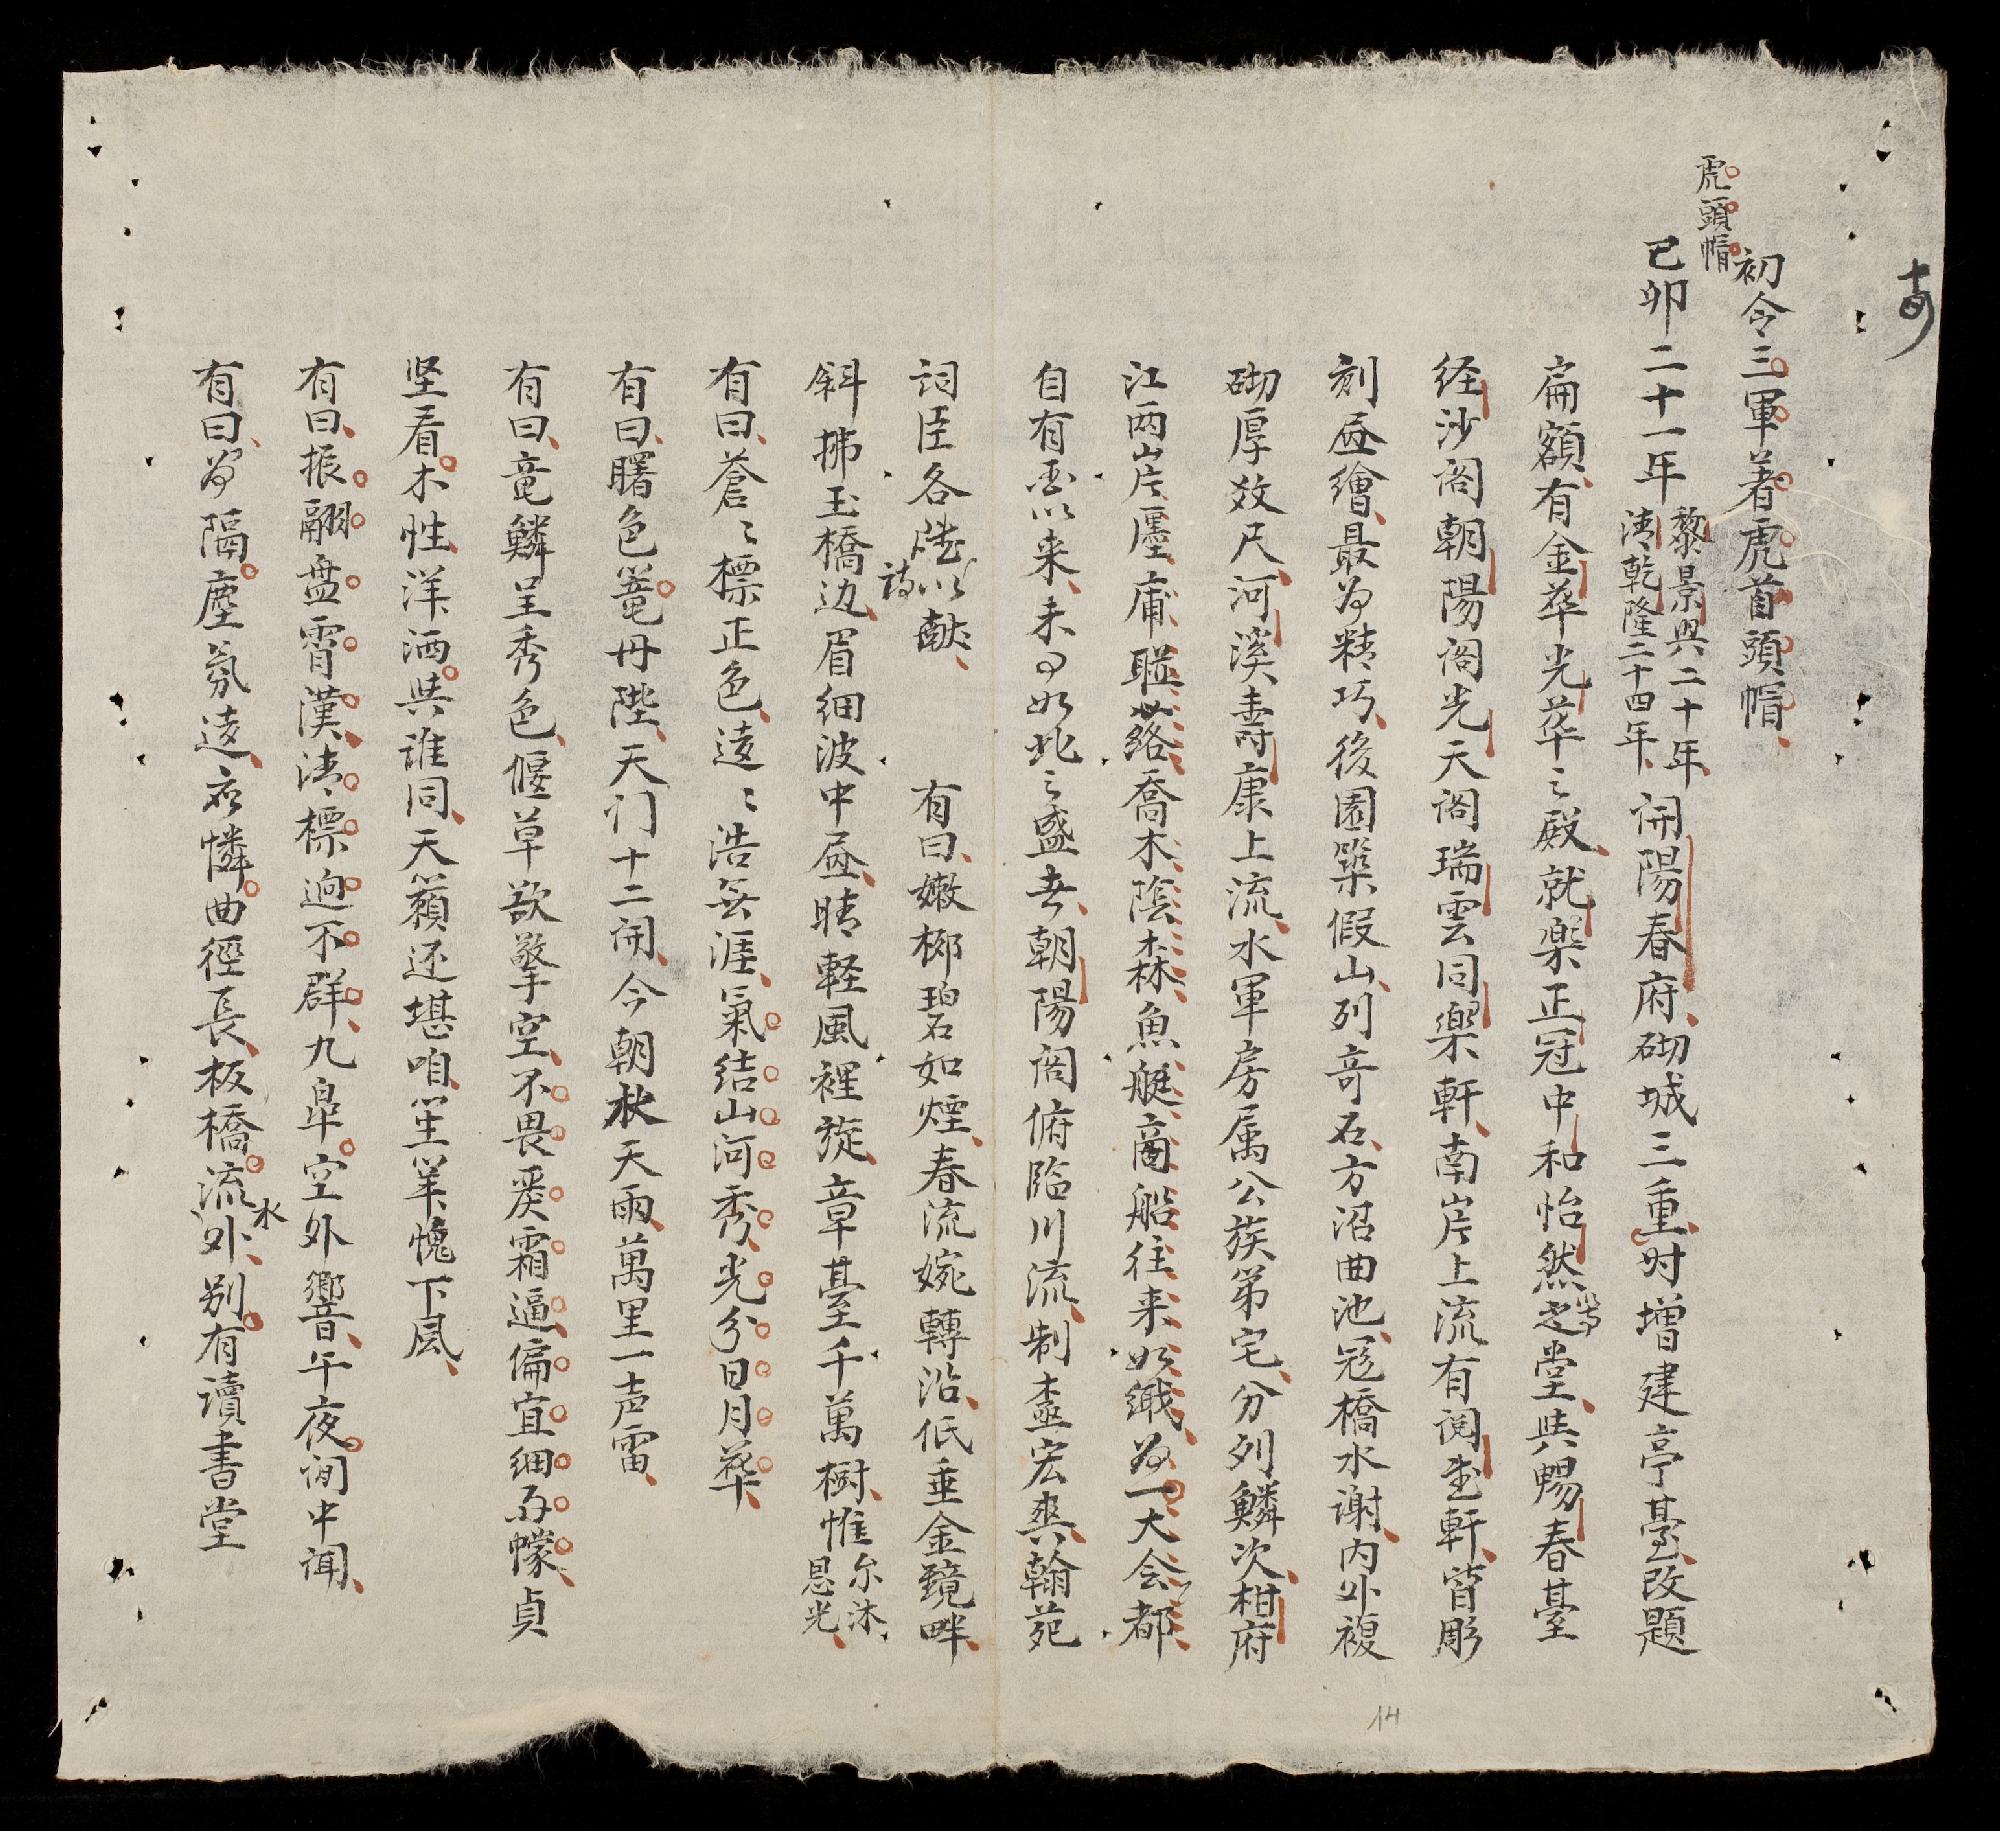 十四
虎頭帽
初令三軍着虎首頭帽
己卯二十一年黎景興二十年清乾隆二十四年開陽春府砌城三重时增建亭臺改題
扁額有金華光華之殿就樂正冠中和怡然之堂等與暢春臺
経沙阁朝陽阁光天阁瑞雲同樂軒南岸上流有閲武軒皆彫
刻画繪最为精巧後園築假山列竒石方沼曲池冦橋水謝内外複
砌厚数尺河溪壽康上流水軍房属公族第宅分列鱗次柑府
江两岸廛庯聫落喬木陰森魚艇商船往来如織为一大会都
自有香以来未有如此之盛者朝陽阁俯臨川流制度宏爽翰苑
詞臣各陸詩以献 有曰嫩柳碧如煙春流婉轉沿低垂金鏡畔
斜拂玉橋边眉細波中画晴軽風裡旋章臺千萬樹惟尔沐恩光
有曰蒼々標正色遠々浩無涯氣结山河秀光分日月華
有曰曙色籠丹陛天门十二開今朝秋天雨萬里一声雷
有曰竜鱗呈秀色偃草欲擎空不畏嚴霜逼偏宜細雨幪貞
坚看木性洋洒與誰同天籟还堪咱笙羊愧下風
有曰振翮盘霄漢清標逈不群九皐空外響午夜洞中闻
有曰为隔塵氛遠衣憐曲徑長板橋流水外别有讀書堂
14